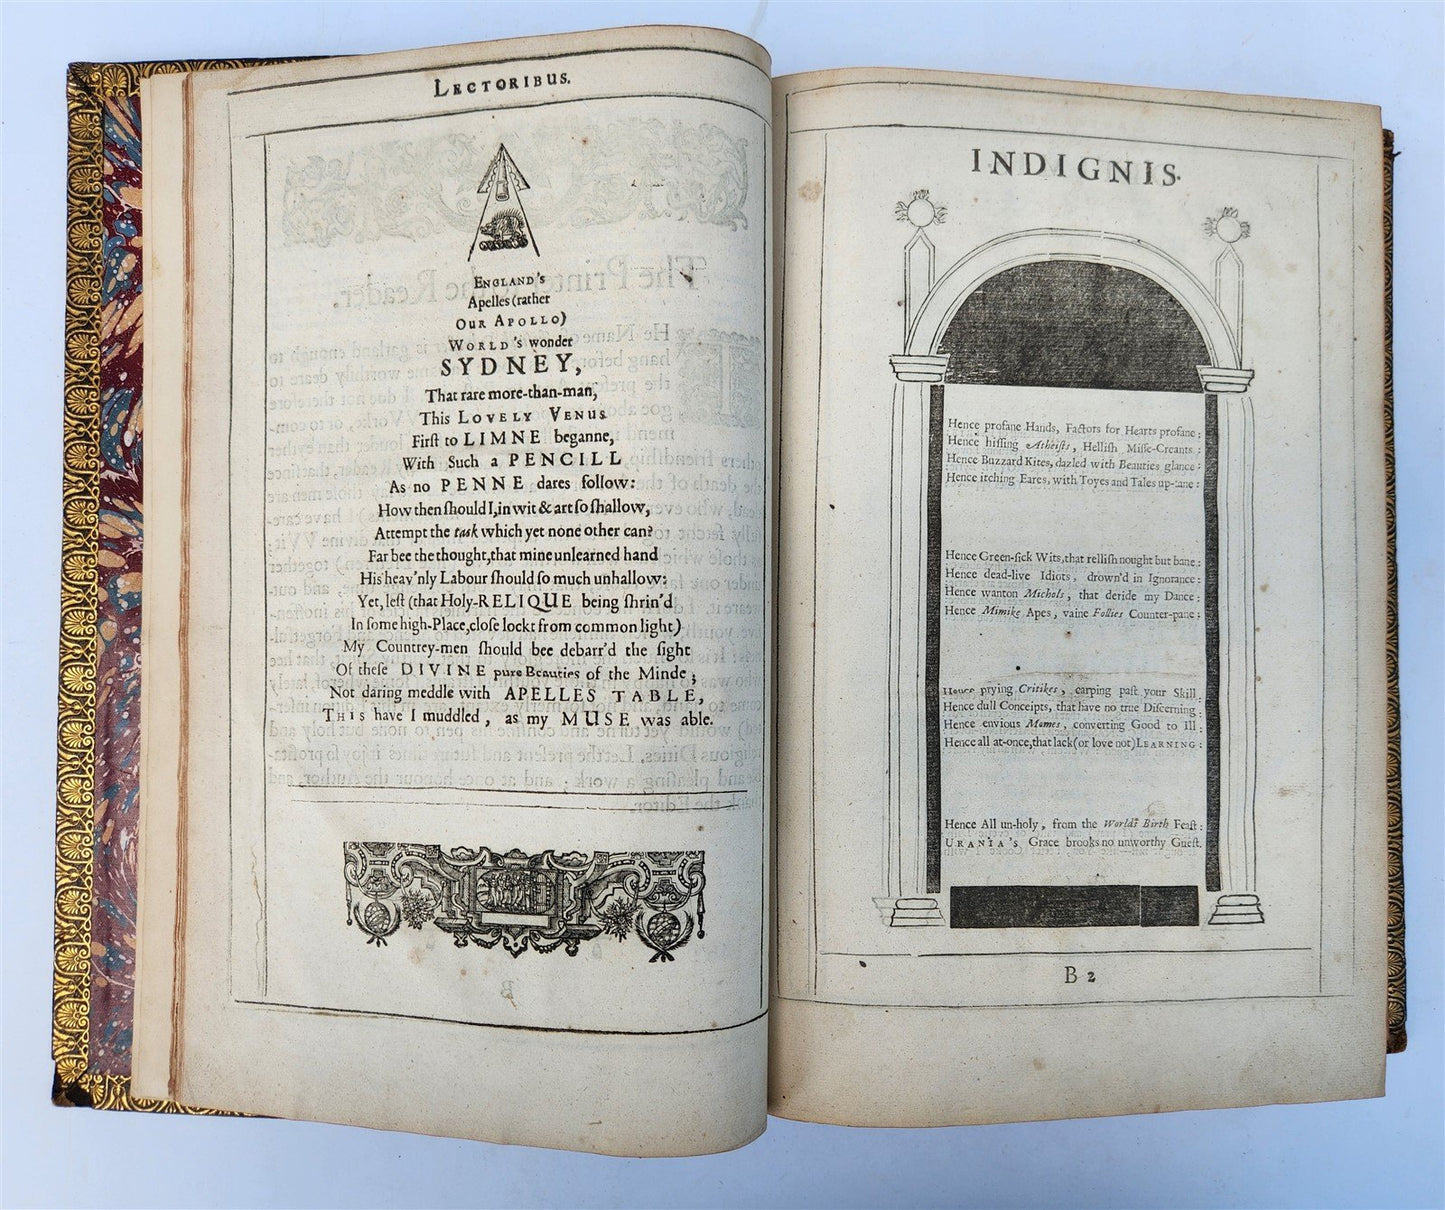 LECTORIBUS.
ENGLAND'S
Apelles (rather
OUR APOLLO)
WORLD'S wonder
SYDNEY,
That rare more-than-man,
This LOVELY VENUS
Firſt to LIMNE beganne,
With Such a PENCILL
As no PENNE dares follow:
How then ſhould I, in wit & art ſo ſhallow,
Attempt the task which yet none other can?
Far bee the thought, that mine unlearned hand
His heav'nly Labour ſhould ſo much unhallow:
Yet, leſt (that Holy-RELIQUE being ſhrin'd
In ſome high-Place, cloſe lockt from common light)
My Countrey-men ſhould bee debarr'd the ſight
Of theſe DIVINE pure Beauties of the Minde;
Not daring meddle with APELLES TABLE,
THIS have I muddled, as my MUSE was able.
INDIGNIS.
Hence profane Hands, Factors for Hearts profane:
Hence hiſſing Atheiſts, Helliſh Miſſe-Creants:
Hence Buzzard Kites, dazled with Beauties glance:
Hence itching Eares, with Toyes and Tales up-tane:
Hence Green-ſick Wits, that relliſh nought but bane:
Hence dead-live Idiots, drown'd in Ignorance:
Hence wanton Michols, that deride my Dance:
Hence Mimike Apes, vaine Follies Counter-pane:
Hence prying Critikes, carping paſt your Skill.
Hence dull Conceipts, that have no true Diſcerning:
Hence envious Momes, converting Good to Ill:
Hence all at-once, that lack (or love not) LEARNING:
Hence All un-holy, from the Worlds Birth Feaſt:
URANIA'S Grace brooks no unworthy Gueſt.
B 2